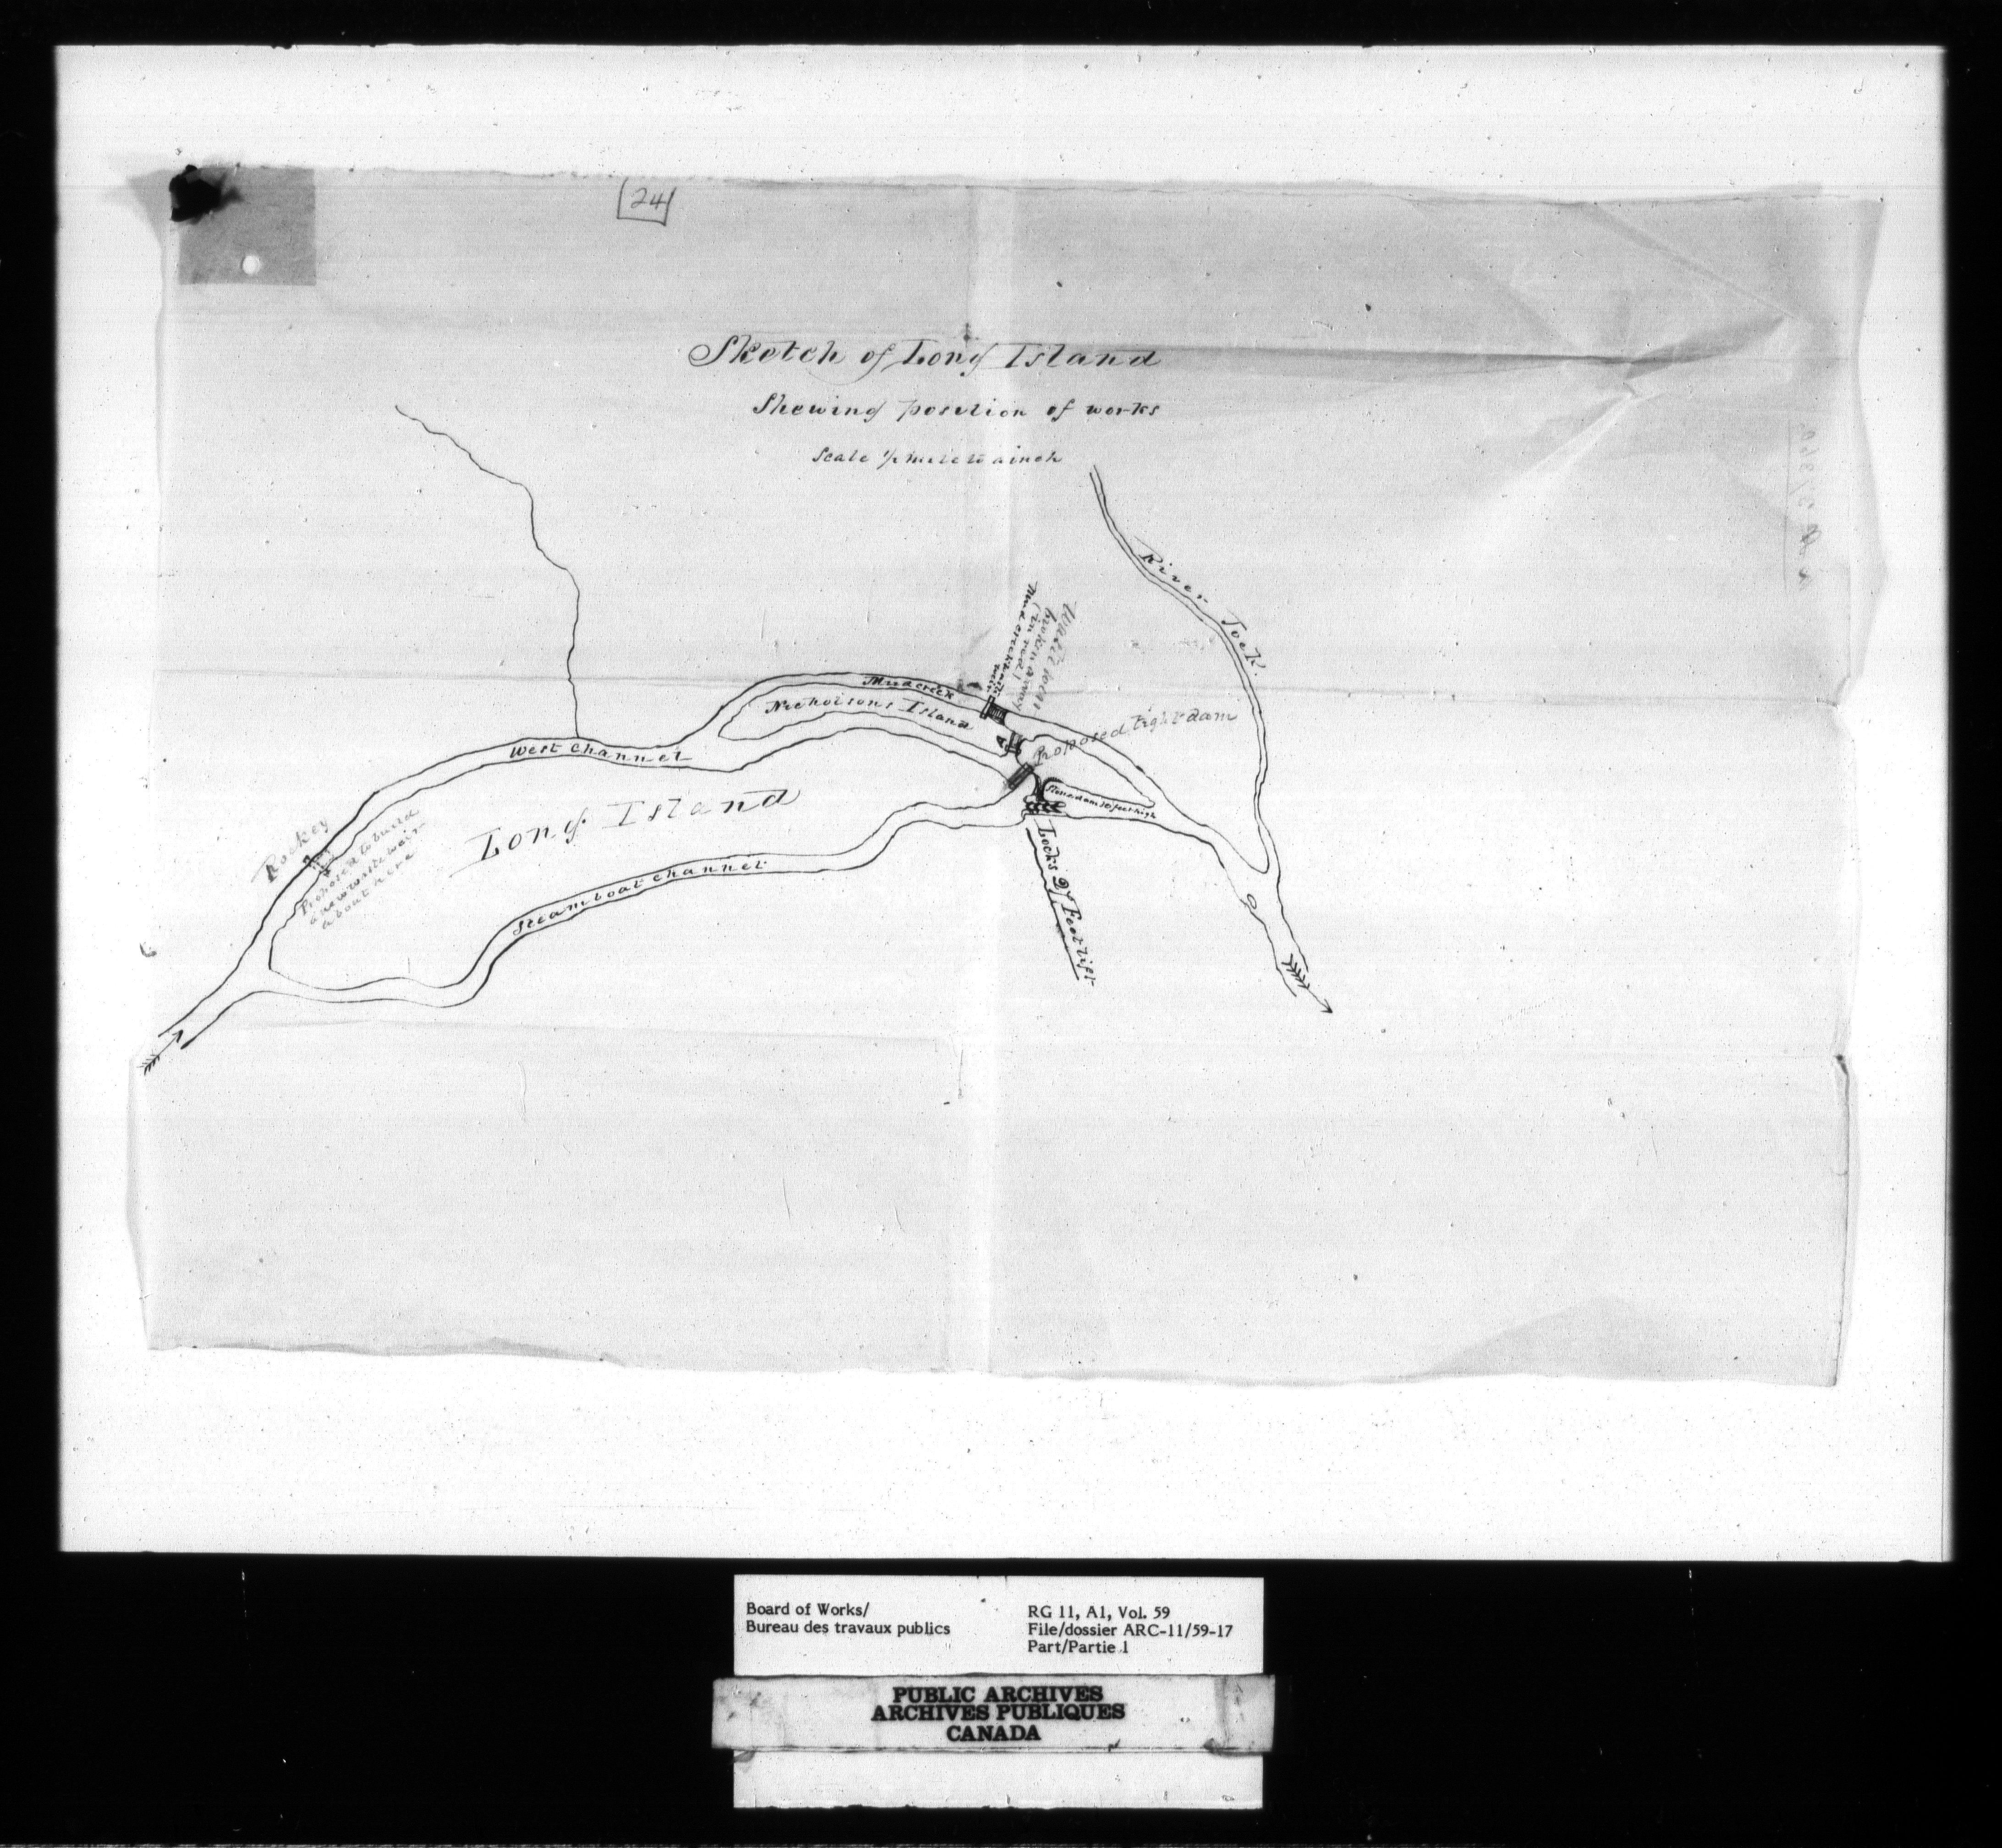 24
Sketch of Long Island
Shewing position of works
Scale 1/2 mile to a inch
River Jock
Mud creek waste weir
Waste weir
broken away
(in red)
Mud creek
Nicholsons Island
A
Proposed tight dam
West Channel
Stone dam 30 feet high
Long Island
Rockey
Proposed to build
a new waste weir
about here
Steamboat channel
Locks 27 Feet lift
Board of Works/
Bureau des travaux publics
RG 11, A1, Vol. 59
File/dossier ARC-11/59-17
Part/Partie 1
PUBLIC ARCHIVES
ARCHIVES PUBLIQUES
CANADA